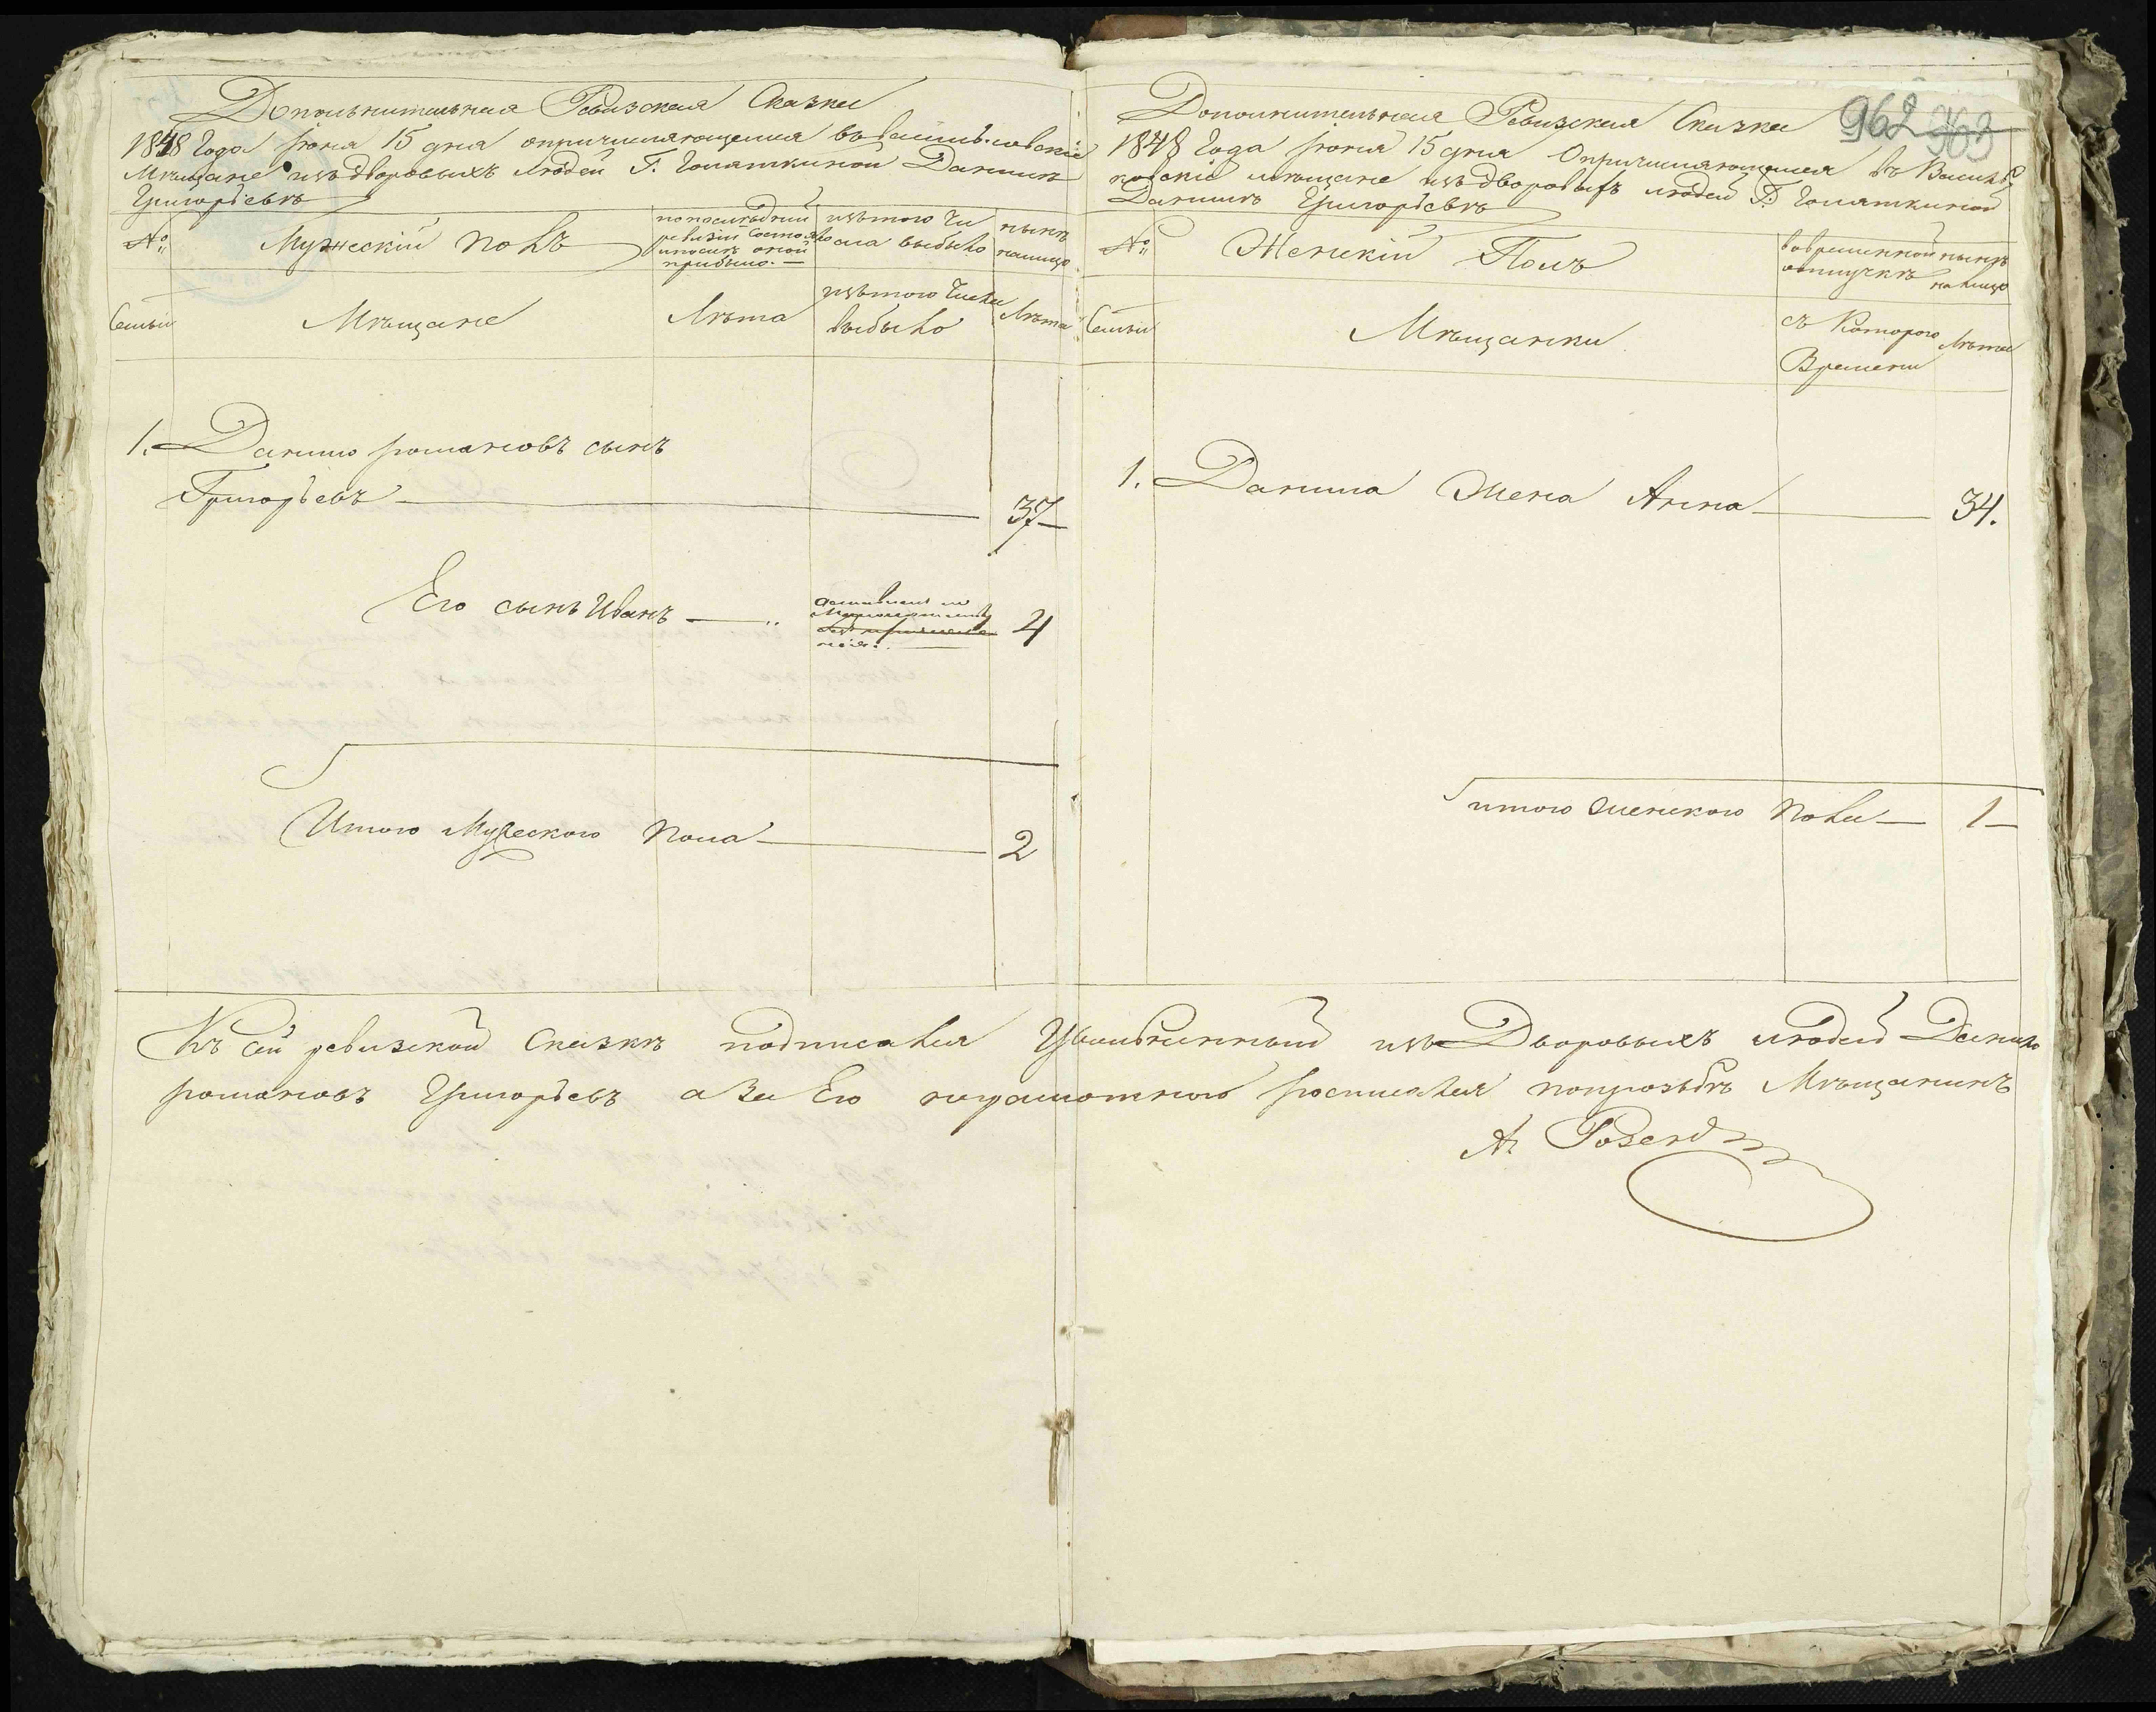 Дополнительная Ревизская Сказка
1848 Года июня 15 дня о причисляющемся въ Васильковские
Мѣщане изъ дворовыхъ людей Г. Голяткиной Даниилѣ
Григорьевѣ
№
Мужескій полъ
по последней ревизіи состояло и после оной прибыло.
изъ того числа выбыло
нынѣ на лицо
Семьи
Мѣщане
Лѣта
изъ того числа выбыло
Лѣта
1. Данило романовъ сынъ
Григорьевъ — 37
Его сынъ Иванъ — 4
Итого Мужескаго пола — 2
962 963
Дополнительная Ревизская Сказка
1848 Года июня 15 дня О причисляющемся въ Василь
ковскіе мѣщане изъ дворовыхъ людей Г. Голяткиной
Даниилѣ Григорьевѣ
№
Женскій Полъ
во временной отлучкѣ
нынѣ на лицо
Семьи
Мѣщанки
съ Которого Времени
Лѣта
1. Данила Жена Анна — 34.
итого женского пола — 1
Къ сей ревизской Сказкѣ подписался Уволенный изъ Дворовыхъ людей Данило
романовъ Григорьевъ а За Его неграмотного росписался по прозьбѣ Мѣщанинъ